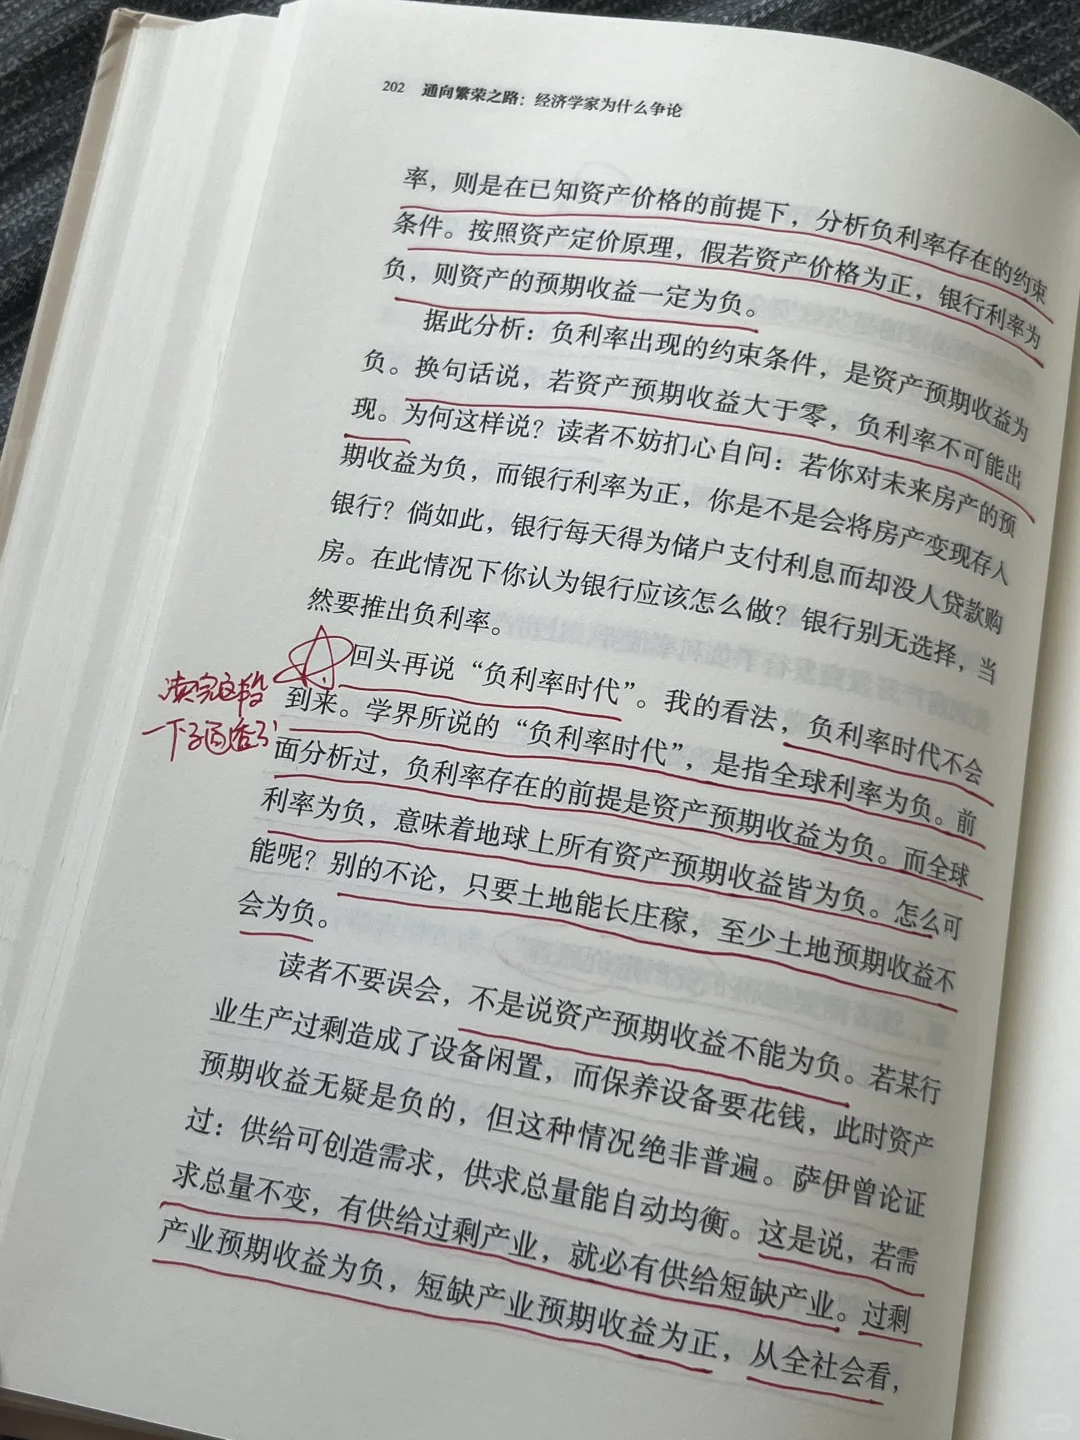 202 通向繁荣之路：经济学家为什么争论
率，则是在已知资产价格的前提下，分析负利率存在的约束
条件。按照资产定价原理，假若资产价格为正，银行利率为
负，则资产的预期收益一定为负。
据此分析：负利率出现的约束条件，是资产预期收益为
负。换句话说，若资产预期收益大于零，负利率不可能出
现。为何这样说？读者不妨扪心自问：若你对未来房产的预
期收益为负，而银行利率为正，你是不是会将房产变现存入
银行？倘如此，银行每天得为储户支付利息而却没人贷款购
房。在此情况下你认为银行应该怎么做？银行别无选择，当
然要推出负利率。
回头再说“负利率时代”。我的看法，负利率时代不会
到来。学界所说的“负利率时代”，是指全球利率为负。前
面分析过，负利率存在的前提是资产预期收益为负。而全球
利率为负，意味着地球上所有资产预期收益皆为负。怎么可
能呢？别的不论，只要土地能长庄稼，至少土地预期收益不
会为负。
读完这段
一下子通透了
读者不要误会，不是说资产预期收益不能为负。若某行
业生产过剩造成了设备闲置，而保养设备要花钱，此时资产
预期收益无疑是负的，但这种情况绝非普遍。萨伊曾论证
过：供给可创造需求，供求总量能自动均衡。这是说，若需
求总量不变，有供给过剩产业，就必有供给短缺产业。过剩
产业预期收益为负，短缺产业预期收益为正，从全社会看，